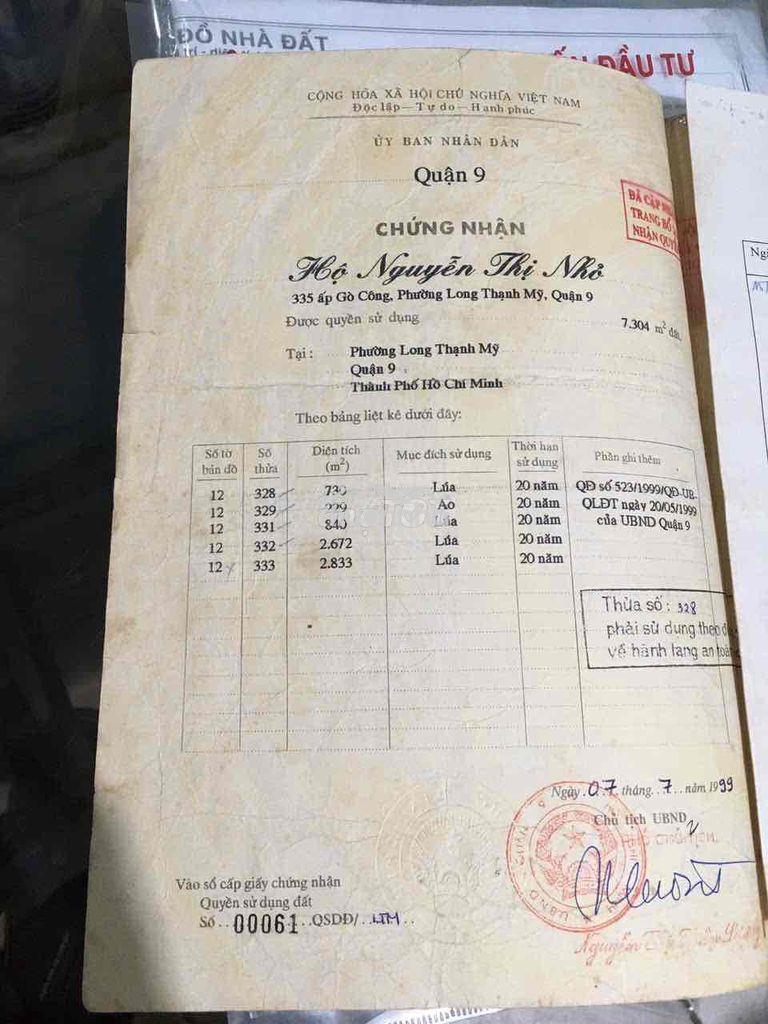 ĐỒ NHÀ ĐẤT
ĐẦU TƯ
CỘNG HÒA XÃ HỘI CHỦ NGHĨA VIỆT NAM
Độc lập — Tự do — Hạnh phúc
ỦY BAN NHÂN DÂN
Quận 9
ĐÃ CẤP
TRANG BỔ
NHẬN QUYỀ
CHỨNG NHẬN
Hộ Nguyễn Thị Nhỏ
335 ấp Gò Công, Phường Long Thạnh Mỹ, Quận 9
Được quyền sử dụng 7.304 m² đất,
Tại : Phường Long Thạnh Mỹ
Quận 9
Thành Phố Hồ Chí Minh
Theo bảng liệt kê dưới đây:
Số tờ bản đồ Số thửa Diện tích (m²) Mục đích sử dụng Thời hạn sử dụng Phần ghi thêm
12 328 730 Lúa 20 năm QĐ số 523/1999/QĐ-UB-
12 329 229 Ao 20 năm QLĐT ngày 20/05/1999
12 331 840 Lúa 20 năm của UBND Quận 9
12 332 2.672 Lúa 20 năm
12 333 2.833 Lúa 20 năm
Thửa số : 328
phải sử dụng theo
về hành lang an toàn
Ngày 07 tháng 7 năm 1999
Chủ tịch UBND
Vào sổ cấp giấy chứng nhận
Quyền sử dụng đất
Số 00061 QSDĐ/ LTM